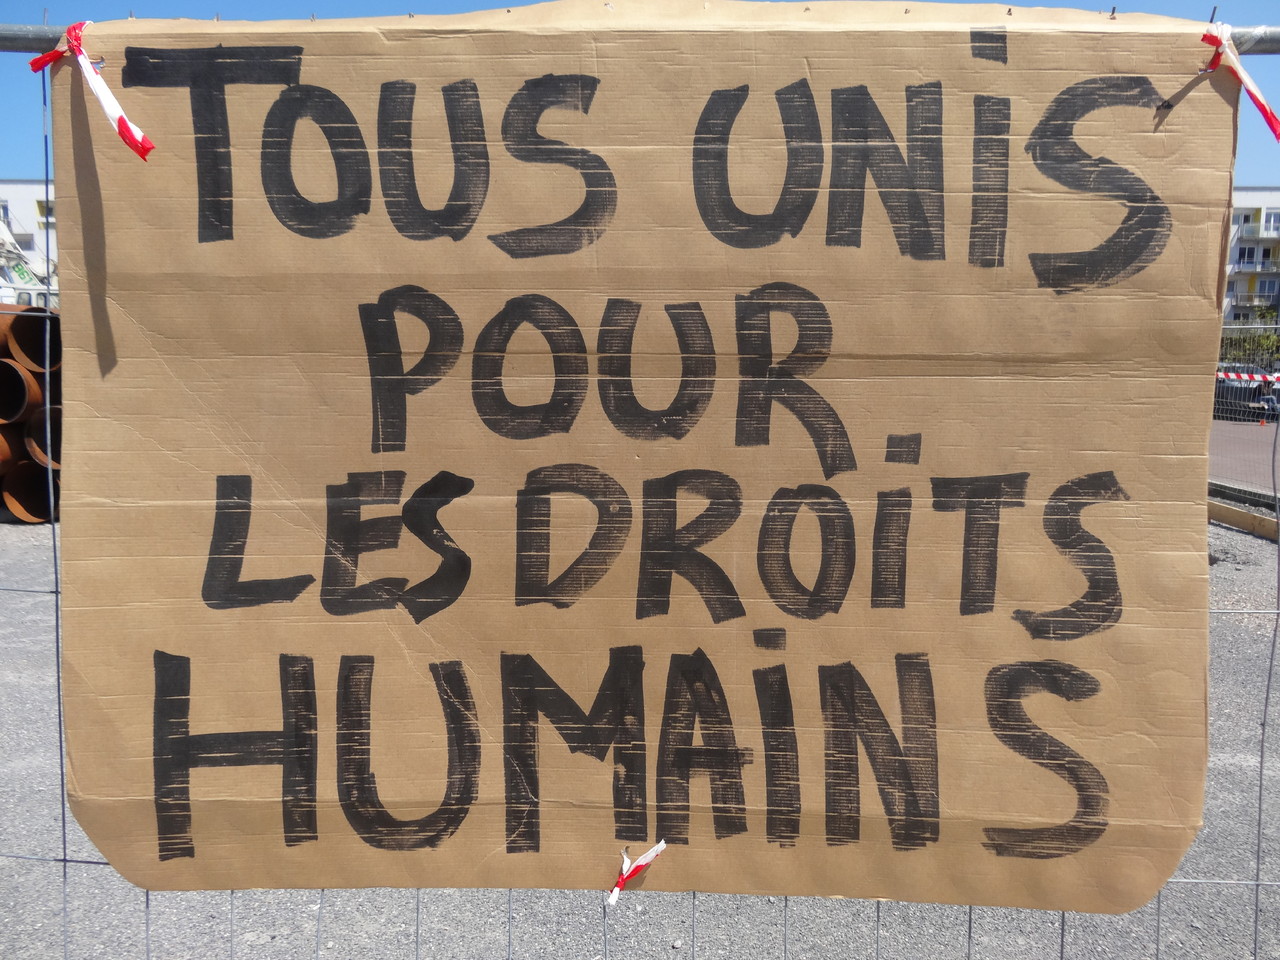 TOUS UNiS
POUR
LES DROiTS
HUMAiNS